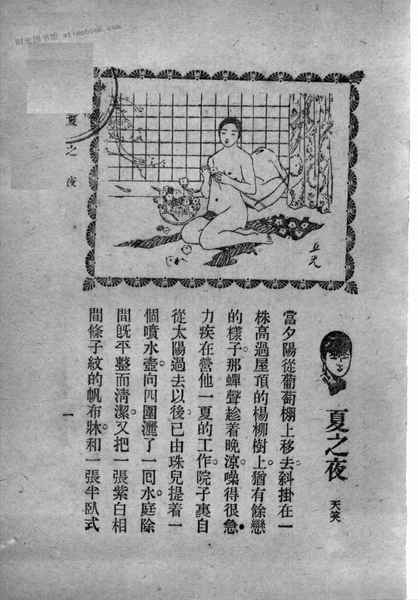 夏之夜
夏之夜
天笑
當夕陽從葡萄棚上移去斜掛在一
株高過屋頂的楊柳樹上。猶有餘戀
的樣子。那蟬聲趁着晚涼噪得很急。
力疾在營他一夏的工作。院子裏自
從太陽過去以後。已由珠兒提着一
個噴水壺。向四圍灑了一囘水。庭除
間旣平整而清潔。又把一張紫白相
間條子紋的帆布牀。和一張半臥式
一